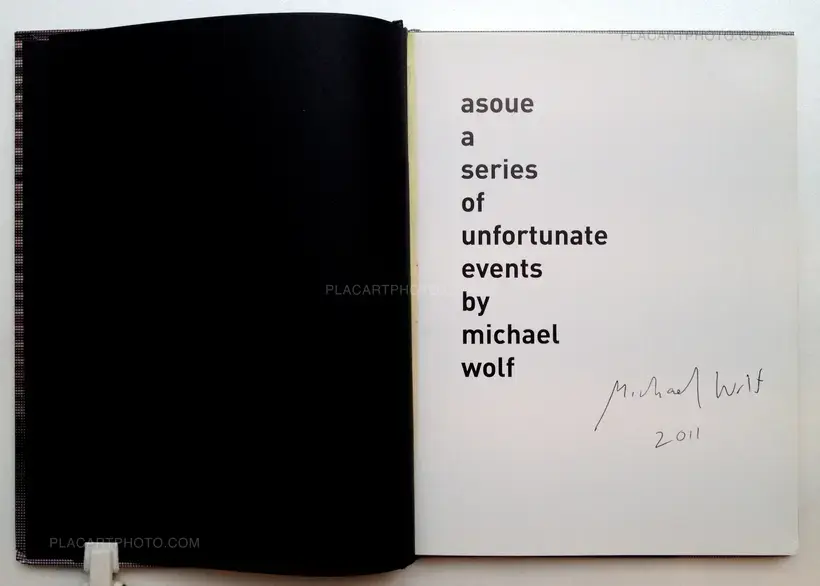 PLACARTPHOTO.COM
asoue
a
series
of
unfortunate
events
by
michael
wolf
PLACARTPHOTO
Michael Wolf
2011
PLACARTPHOTO.COM